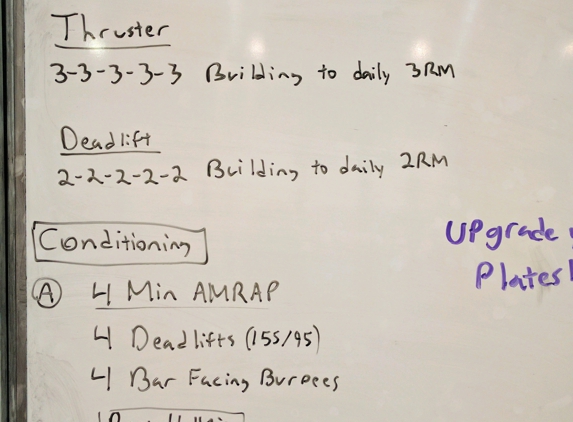 Thruster
3-3-3-3-3 Building to daily 3RM
Deadlift
2-2-2-2-2 Building to daily 2RM
Conditioning
A 4 Min AMRAP
4 Deadlifts (155/95)
4 Bar Facing Burpees
Upgrade
Plates!